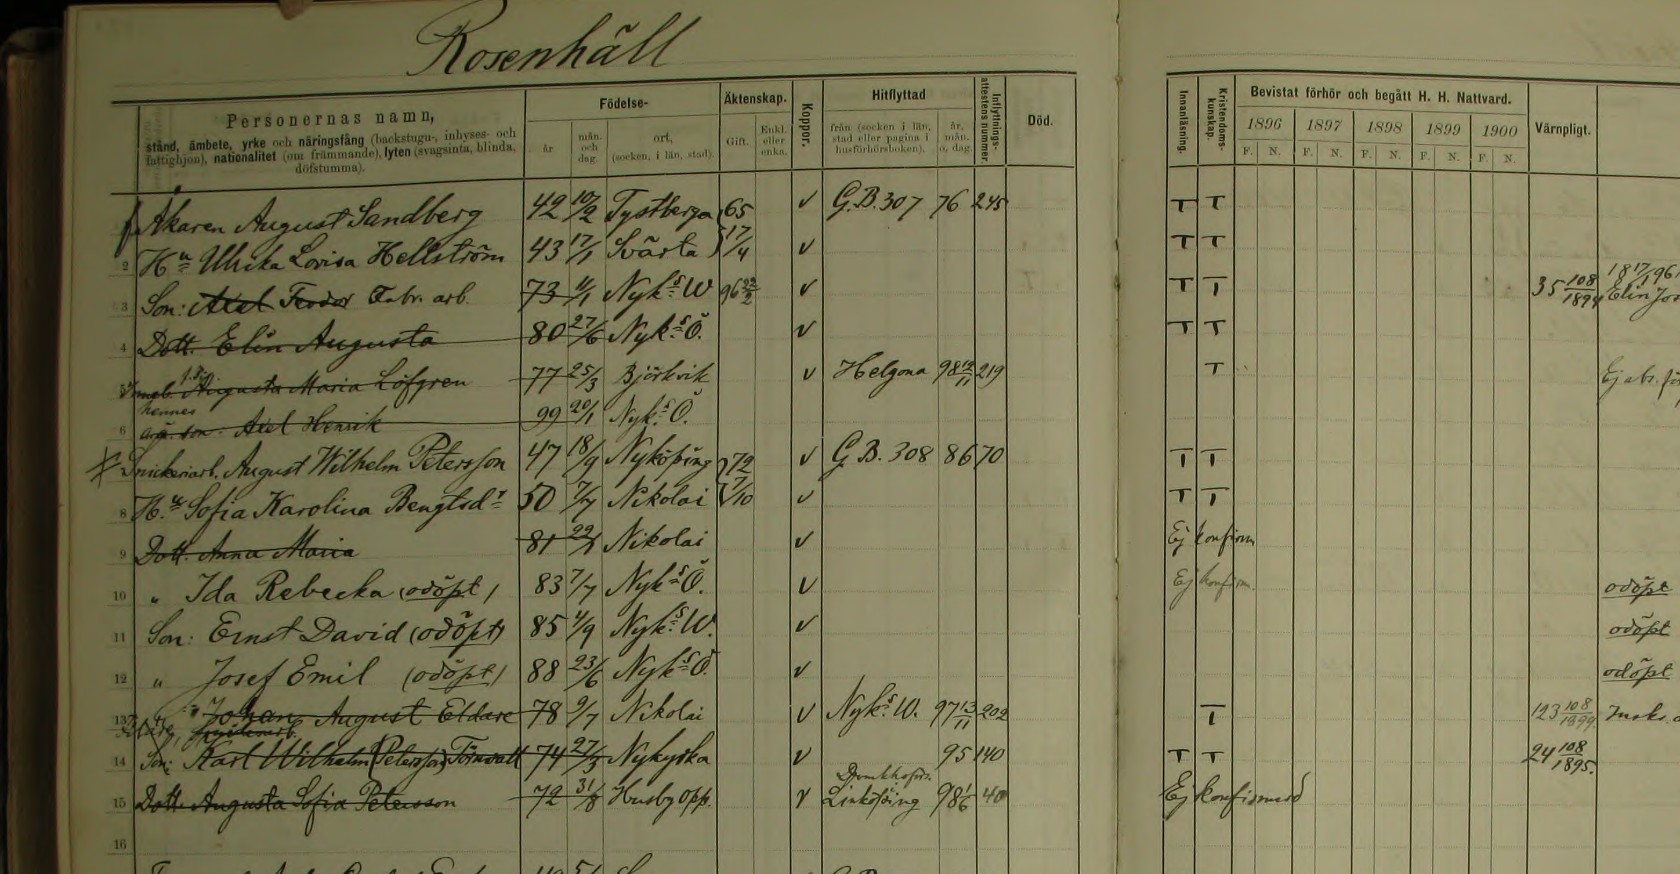 Rosenhäll
Personernas namn, Födelse- Äktenskap. Koppor. Hitflyttad Inflyttnings-attestens nummer. Död. Innanläsning. Kristendoms-kunskap. Bevistat förhör och begått H. H. Nattvard. Värnpligt.
stånd, ämbete, yrke och näringsfång (backstugu-, inhyses- och
fattighjon), nationalitet (om främmande), lyten (svagsinta, blinda,
döfstumma).
år mån. och dag. ort, (socken, i län, stad). Gift. Enkl. eller enka. från (socken i län, stad eller pagina i husförhörsboken). år, mån. o. dag. 1896 1897 1898 1899 1900
F. N. F. N. F. N. F. N. F. N.
Åkaren August Sandberg 42 10/2 Tystberga 65 v G.B. 307 76 245 T T
2 Hu Ulrika Lovisa Hellström 43 17/1 Svärta 17/4 v T T
3 Son: Axel Teodor Fabr. arb. 73 11/1 Nyk:s W 96 22/2 v T T 35 108/1894 Elin
4 Dott. Elin Augusta 80 27/6 Nyk:s Ö. v T T
5 Augusta Maria Löfgren 77 25/3 Björkvik v Helgona 98 12/11 219 T Ej abs.
6 hennes son Axel Henrik 99 20/1 Nyk:s Ö.
Snickeriarb. August Wilhelm Petersson 47 18/9 Nyköping 72 v G.B. 308 86 70 T T
8 H:u Sofia Karolina Bengtsdr 50 7/7 Nikolai 7/10 v T T
9 Dott. Anna Maria 81 Nikolai v Ej konfirm
10 " Ida Rebecka (odöpt) 83 7/7 Nyk:s Ö. v Ej konfirm. odöpt
11 Son: Ernst David (odöpt) 85 4/9 Nyk:s W. v odöpt
12 " Josef Emil (odöpt) 88 23/6 Nyk:s Ö. v odöpt
13 Johan August Eldare 78 9/7 Nikolai v Nyk:s W. 97 13/11 202 T 123 108/1899
14 Son: Karl Wilhelm (Petersson) Törnvall 74 27/3 Nykyrka v 95 140 T T 24 108/1895.
15 Dott Augusta Sofia Petersson 72 31/8 Husby opp. v Domkhoförs. Linköping 98 1/6 40 Ej konfirmerad
16